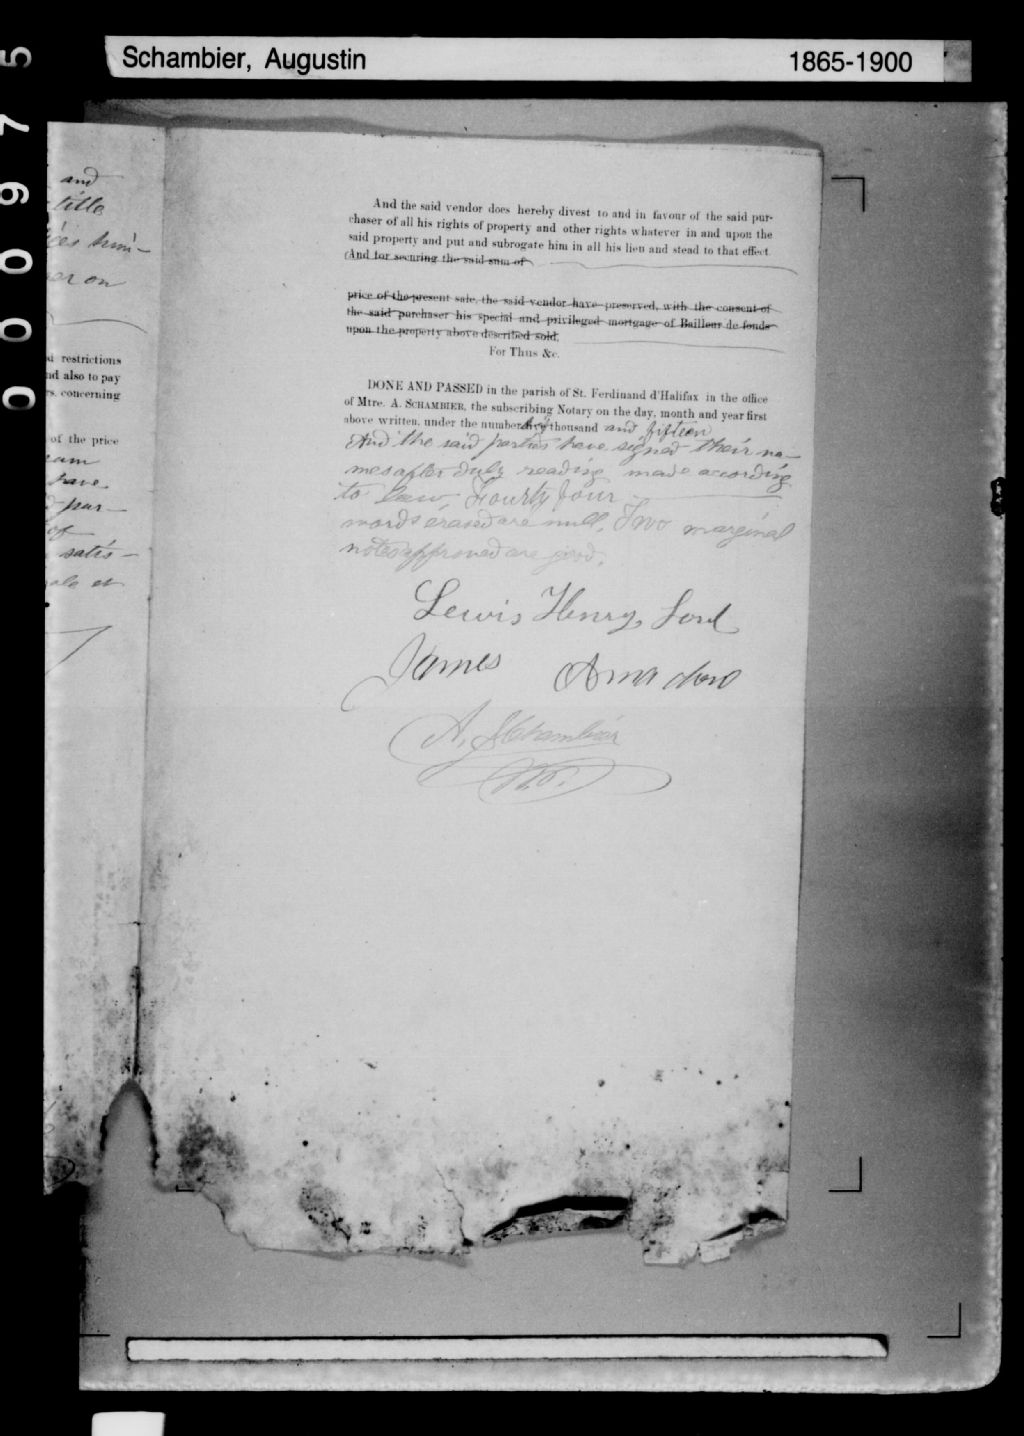 Schambier, Augustin 1865-1900
000975
and
title
him-
er on
restrictions
nd also to pay
rs. concerning
of the price
have
pur-
of
satis-
And the said vendor does hereby divest to and in favour of the said pur-
chaser of all his rights of property and other rights whatever in and upon the
said property and put and subrogate him in all his lieu and stead to that effect.
(And for securing the said sum of
price of the present sale, the said vendor have preserved, with the consent of
the said purchaser his special and privileged mortgage of Bailleur de fonds
upon the property above described sold.
For Thus &c.
DONE AND PASSED in the parish of St. Ferdinand d'Halifax in the office
of Mtre. A. SCHAMBIER, the subscribing Notary on the day, month and year first
above written, under the number thousand and fifteen
And the said parties have signed their na-
mes after duly reading made according
to law. Fourty four
words erased are null. Two marginal
notes approved are good.
Lewis Henry Lord
James Amadon
A. Schambier
N.P.